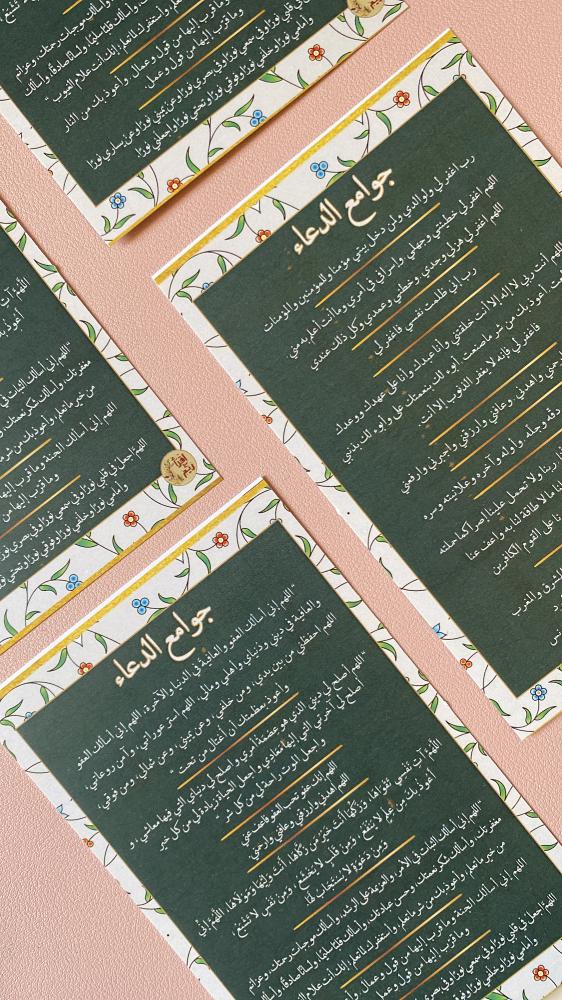 جوامع الدعاء
رب اغفر لي ولوالدي ولمن دخل بيتي مؤمنا وللمؤمنين والمؤمنات
اللهم اغفر لي خطيئتي وجهلي، وإسرافي في أمري وما أنت أعلم به مني
اللهم اغفر لي هزلي وجدي، وخطئي وعمدي وكل ذلك عندي
رب إني ظلمت نفسي فاغفر لي
اللهم أنت ربي لا إله إلا أنت خلقتني وأنا عبدك وأنا على عهدك ووعدك
أعوذ بك من شر ما صنعت أبوء لك بنعمتك علي وأبوء لك بذنبي
فاغفر لي فإنه لا يغفر الذنوب إلا أنت
واهدني، وعافني وارزقني واجبرني وارفعني
دقه وجله، وأوله وآخره وعلانيته وسره
ربنا ولا تحمل علينا إصرا كما حملته
ما لا طاقة لنا به واعف عنا
على القوم الكافرين
المشرق والمغرب
جوامع الدعاء
"اللهم إني أسألك العفو والعافية في الدنيا والآخرة، اللهم إني أسألك العفو
والعافية في ديني ودنياي وأهلي ومالي، اللهم استر عوراتي، وآمن روعاتي،
اللهم احفظني من بين يدي، ومن خلفي، وعن يميني، وعن شمالي، ومن فوقي،
وأعوذ بعظمتك أن أغتال من تحتي"
"اللهم أصلح لي ديني الذي هو عصمة أمري وأصلح لي دنياي التي فيها معاشي، و
أصلح لي آخرتي التي إليها معادي واجعل الحياة زيادة لي من كل خير
واجعل الموت راحة لي من كل شر"
اللهم إنك عفو تحب العفو فاعف عني
اللهم اهدني وارزقني وعافني وارحمني
اللهم آت نفسي تقواها، وزكها أنت خير من زكاها، أنت وليها ومولاها، اللهم إني
أعوذ بك من علم لا ينفع، ومن قلب لا يخشع، ومن نفس لا تشبع،
ومن دعوة لا يستجاب لها
"اللهم إني أسألك الثبات في الأمر، والعزيمة على الرشد، وأسألك موجبات رحمتك، وعزائم
مغفرتك، وأسألك شكر نعمتك، وحسن عبادتك، وأسألك قلبًا سليمًا، ولسانًا صادقًا، وأسألك
من خير ما تعلم، وأعوذ بك من شر ما تعلم، وأستغفرك لما تعلم، إنك أنت علام الغيوب"
اللهم إني أسألك الجنة وما قرب إليها من قول وعمل، وأعوذ بك من النار
وما قرب إليها من قول وعمل
اللهم اجعل في قلبي نورًا وفي سمعي نورًا وفي بصري نورًا وعن يميني نورًا وعن يساري نورًا
وأمامي نورًا وخلفي نورًا وفوقي نورًا وتحتي نورًا واجعلني نورًا